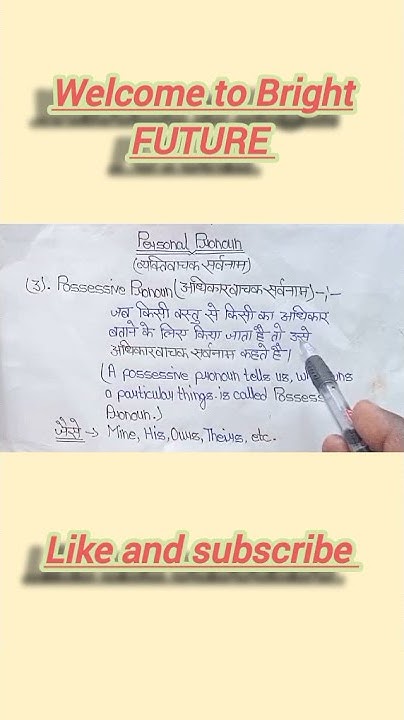 Welcome to Bright
FUTURE
Personal Pronoun
(व्यक्तिवाचक सर्वनाम)
(3). Possessive Pronoun (अधिकारवाचक सर्वनाम) -:-
जब किसी वस्तु से किसी का अधिकार
बताने के लिए किया जाता है तो उसे
अधिकारवाचक सर्वनाम कहते है।
(A possessive pronoun tells us, 
a particular things is called
Pronoun.)
जैसे → Mine, His, Ours, Theirs, etc.
Like and subscribe